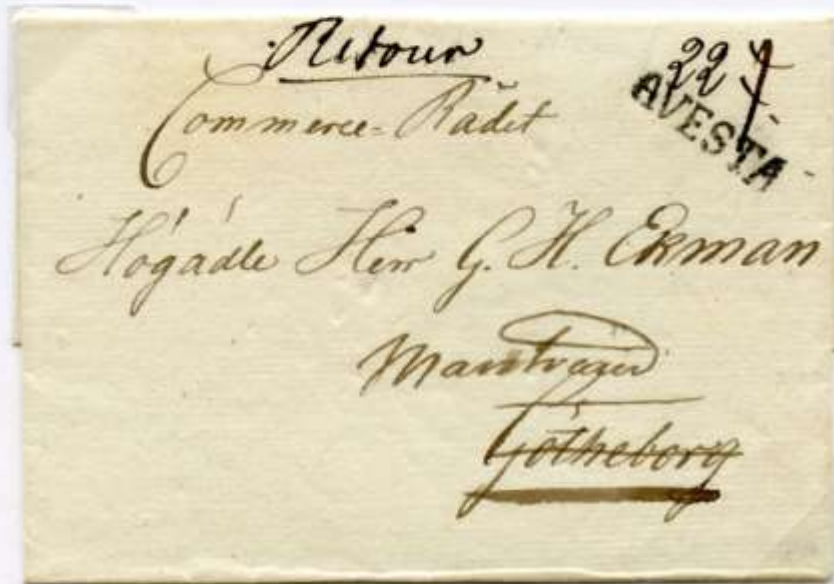 Retour
22
AVESTA
Commerce-Rådet
Högädle Herr G. H. Ekman
Marstrand
Götheborg